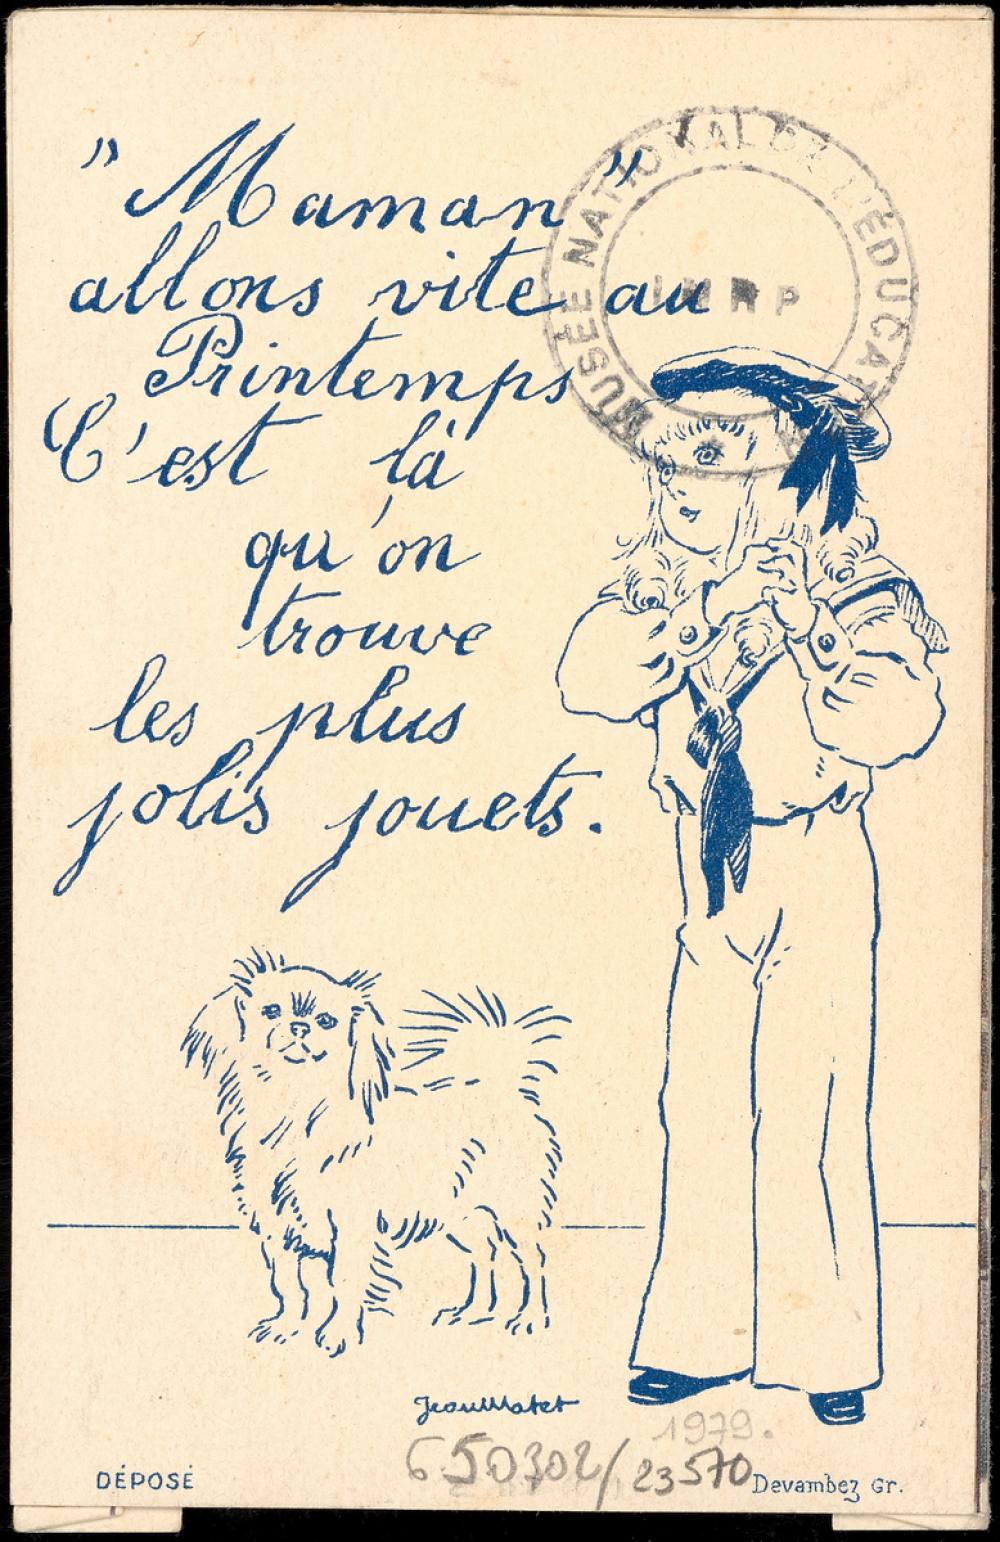 " Maman "
allons vite au
Printemps
C'est là
qu'on
trouve
les plus
jolis jouets.
MUSÉE NATIONAL DE L'ÉDUCATION
INRP
Jean Matet
1979.
650302/23570
DÉPOSÉ
Devambez Gr.